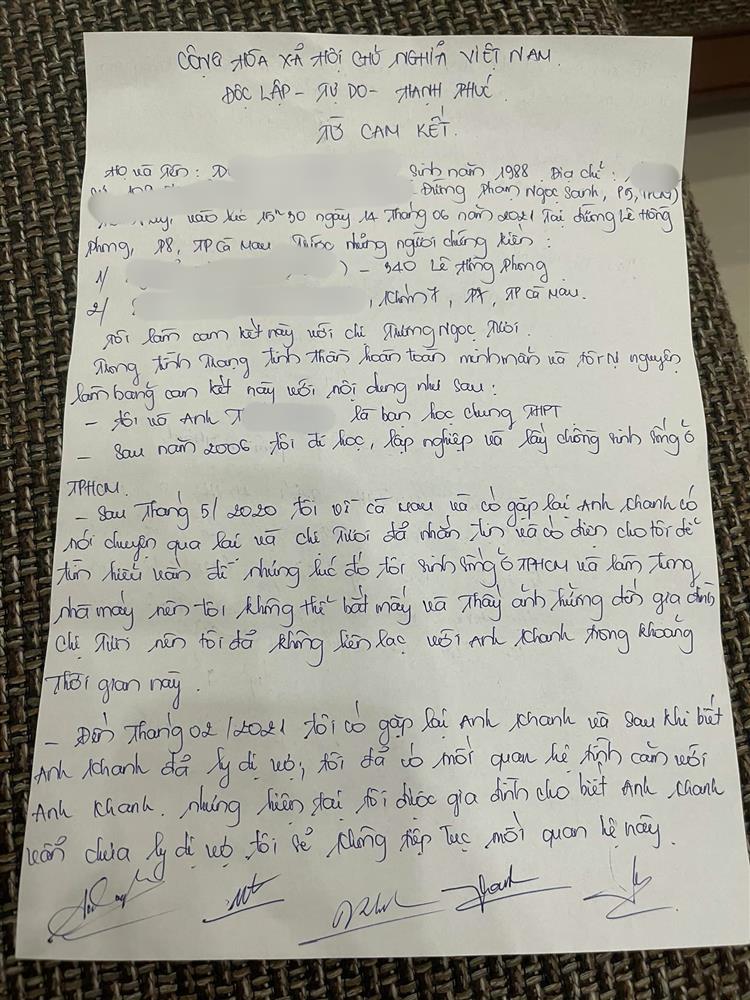 CỘNG HÓA XÃ HỘI CHỦ NGHĨA VIỆT NAM.
ĐỘC LẬP - TỰ DO - HẠNH PHÚC.
TỜ CAM KẾT.
Họ và tên: D Sinh năm 1988 Địa chỉ:
Đường Phạm Ngọc Sanh, P5, TPCM)
vào lúc 15h30 ngày 14 tháng 06 năm 2021 Tại đường Lê Hồng
Phong, P8, TP Cà Mau Trước những người chứng kiến:
1/ ) - 340 Lê Hồng Phong
2/ , Khóm 7, P7, TP Cà Mau.
Tôi làm cam kết này với chị Trương Ngọc Tươi.
Trong tình trạng tinh thần hoàn toàn minh mẫn và tôi tự nguyện
làm bảng cam kết này với nội dung như sau:
- Tôi và Anh T là bạn học chung THPT
- Sau năm 2006 tôi đi học, lập nghiệp và lấy chồng sinh sống ở
TPHCM.
- Sau Tháng 5/2020 tôi về Cà Mau và có gặp lại Anh Khanh có
nói chuyện qua lại và chị Tươi đã nhắn tin và có điện cho tôi để
tìm hiểu vấn đề nhưng lúc đó tôi sinh sống ở TPHCM và làm trong
nhà máy nên tôi không thể bắt máy và thấy ảnh hưởng đến gia đình
chị Tươi nên tôi đã không liên lạc với Anh Khanh trong khoảng
thời gian này.
- Đến Tháng 02/2021 tôi có gặp lại Anh Khanh và sau khi biết
Anh Khanh đã ly dị vợ, tôi đã có mối quan hệ tình cảm với
Anh Khanh. Nhưng hiện tại tôi được gia đình cho biết Anh Khanh
vẫn chưa ly dị vợ tôi sẽ không tiếp tục mối quan hệ này.